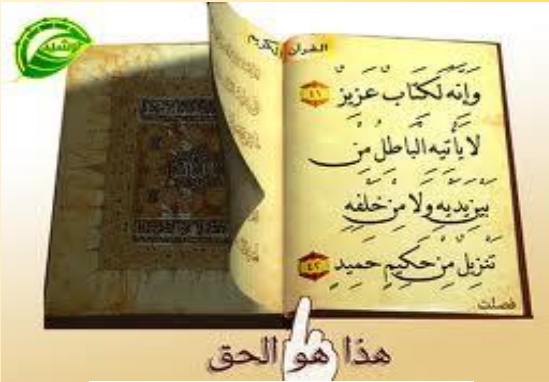 القرآن الكريم
وَإِنَّهُ لَكِتَابٌ عَزِيزٌ ٤١
لَا يَأْتِيهِ الْبَاطِلُ مِنْ
بَيْنِ يَدَيْهِ وَلَا مِنْ خَلْفِهِ
تَنزِيلٌ مِّنْ حَكِيمٍ حَمِيدٍ ٤٢
فصلت
هذا هو الحق